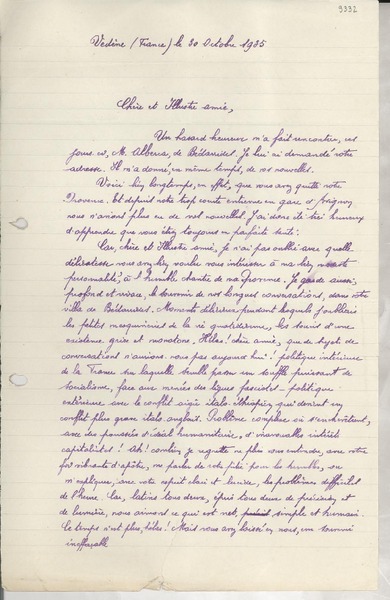 9332
Vedène (France) le 30 Octobre 1935
Chère et Illustre amie,
Un hasard heureux m'a fait rencontrer, ces
jours-ci, M. Alberca, de Bédarrides. Je lui ai demandé votre
adresse. Il m'a donné, en même temps, de vos nouvelles.
Voici bien longtemps, en effet, que vous avez quitté notre
Provence. Et depuis notre trop courte entrevue en gare d'Avignon
nous n'avions plus eu de vos nouvelles. J'ai donc été très heureux
d'apprendre que vous étiez toujours en parfaite santé.
Car, chère et Illustre amie, je n'ai pas oublié avec quelle
délicatesse vous avez bien voulu vous intéresser à ma bien modeste
personnalité, à l'humble chantre de ma Provence. Je garde aussi,
profond et vivace, le souvenir de nos longues conversations, dans votre
villa de Bédarrides. Moments délicieux pendant lesquels j'oubliais
les petites mesquineries de la vie quotidienne, les soucis d'une
existence grise et monotone. Hélas! chère amie, que de sujets de
conversations n'aurions-nous pas aujourd'hui! politique intérieure
de la France sur laquelle semble passer un souffle puissant de
socialisme, face aux menées des ligues fascistes — politique
extérieure avec le conflit aigu italo-éthiopien qui devient un
conflit plus grave italo-anglais. Problème complexe où s'enchevêtrent,
avec des poussées d'idéal humanitaire, d'inavouables intérêts
capitalistes! Ah! combien je regrette ne plus vous entendre, avec votre
foi vibrante d'apôtre, me parler de votre pitié pour les humbles, ou
m'expliquer, avec votre esprit clair et lucide, les problèmes difficiles
de l'heure. Car, latins tous deux, épris tous deux de précision et
de lumière, nous aimons ce qui est net, simple et humain.
Ce temps n'est plus, hélas! Mais vous avez laissé en nous, un souvenir
ineffaçable